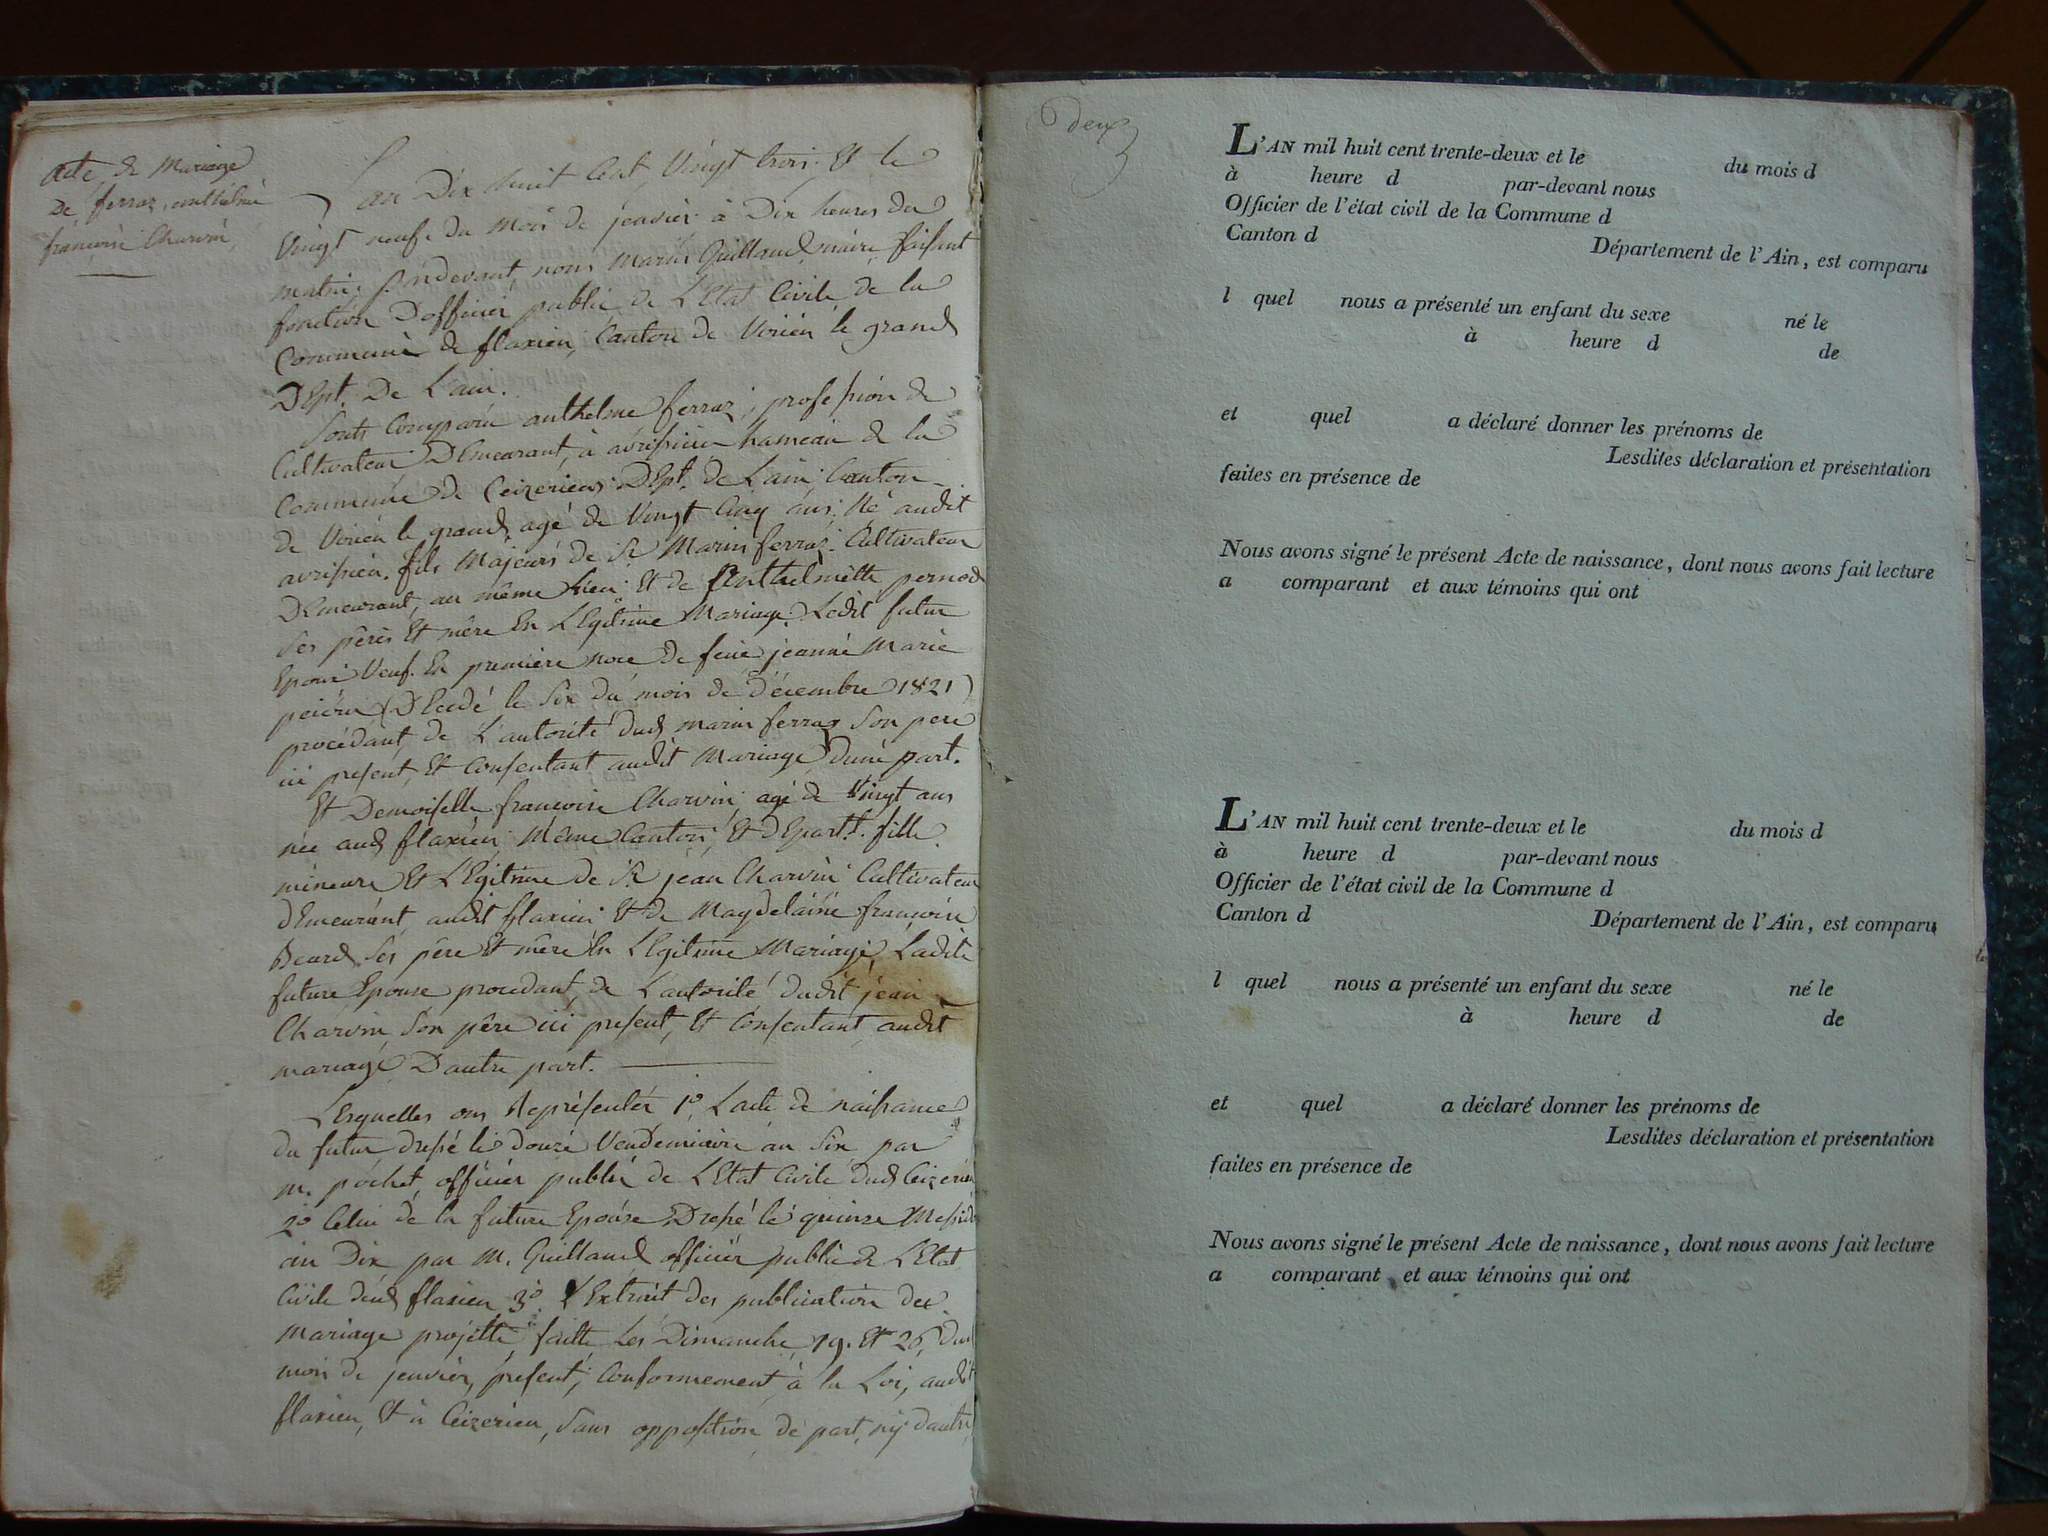 Acte de Mariage
De ferraz anthelme
françoise Charvin
L'an Dix huit Cent Vingt trois. Et le
Vingt neuf du Mois de jenvier à Dix heures du
matin. Pardevant nous Marin Guilland maire faisant
fonction D'officier public de L'Etat Civile de la
Commune de flaxieu, Canton de Virieu le grand
Dept. De L'ain.
Sonts Comparu anthelme ferraz, profession de
Cultivateur Demeurant à avrissieu hameau de la
Commune de Ceizerieu Dept. de L'ain Canton
de Virieu le grand agé de Vingt Cinq ans. Né audit
avrissieu. fils Majeurs de Sr. Marin ferraz. Cultivateur
Demeurant, au même Lieu Et de Anthelmette pernod
Ses pères Et mère En LEgitime Mariage. Ledit futur
Epoux Veuf. En première noce de feue jeanne Marie
(DEcedé le Six du mois de décembre 1821)
procédant de L'autorité dud marin ferraz Son pere
ici present, Et Consentant audit Mariage D'une part.
Et Demoiselle françoise Charvin, agé de Vingt ans
née aud flaxieu, Même Canton, Et dEpartt. fille
mineure Et LEgitime de Sr. jean Charvin Cultivateur
dEmeurant, audit flaxieu Et de Magdelaine françoise
Beard Ses père Et mère En LEgitime Mariage, Ladite
future Epouse procedant, de L'autorité dudit jean
Charvin Son père ici present, Et Consentant audit
mariage D'autre part.
LEsquelles ons Représenter 1º L'acte de naissance
du futur dressé le douze Vendemiaire an Six par
M. pochet officier public de L'Etat Civile dud Ceizerieu
2º Celui de la future Epouse Dressé le quinze Messidor
an Dix par M. Guilland officier public de L'Etat
Civile dud flaxieu 3º L'Extrait des publication des
Mariage projetté, faitte Les Dimanche 19. Et 26, dud
mois de jenvier, present, Conformement à la Loi, audit
flaxieu, Et à Ceizerieu, Sans opposition de part, ny d'autre
deux
L'AN mil huit cent trente-deux et le du mois d
à heure d par-devant nous
Officier de l'état civil de la Commune d
Canton d Département de l'Ain, est comparu
l quel nous a présenté un enfant du sexe né le
à heure d de
et quel a déclaré donner les prénoms de
Lesdites déclaration et présentation
faites en présence de
Nous avons signé le présent Acte de naissance, dont nous avons fait lecture
a comparant et aux témoins qui ont
L'AN mil huit cent trente-deux et le du mois d
à heure d par-devant nous
Officier de l'état civil de la Commune d
Canton d Département de l'Ain, est comparu
l quel nous a présenté un enfant du sexe né le
à heure d de
et quel a déclaré donner les prénoms de
Lesdites déclaration et présentation
faites en présence de
Nous avons signé le présent Acte de naissance, dont nous avons fait lecture
a comparant et aux témoins qui ont